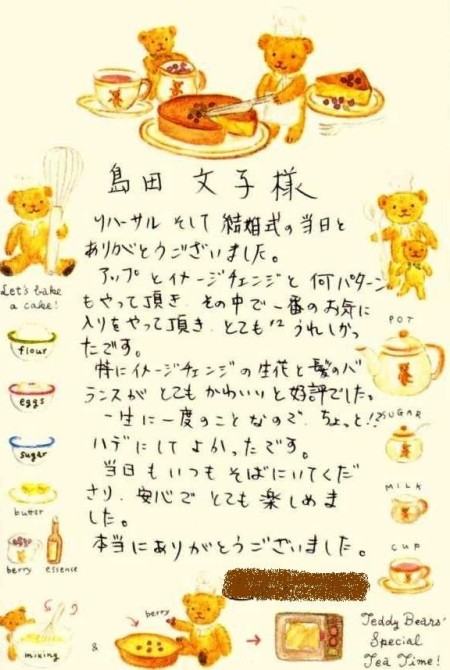 島田 文子様
リハーサル そして 結婚式の当日と
ありがとうございました。
アップ とイメージチェンジと 何パターン
もやって頂き、その中で一番のお気に
入りをやって頂き、とても うれしかっ
たです。
特にイメージチェンジの生花と髪のバ
ランスが とてもかわいいと好評でした。
一生に一度のことなので、ちょっと!?
ハデにして よかったです。
当日も いつも そばにいてくだ
さり、安心で とても楽しめま
した。
本当にありがとうございました。
Let's bake
a cake!
flour
eggs
sugar
butter
berry essence
POT
SUGAR
MILK
CUP
mixing
&
berry
Teddy Bears'
Special
Tea Time!